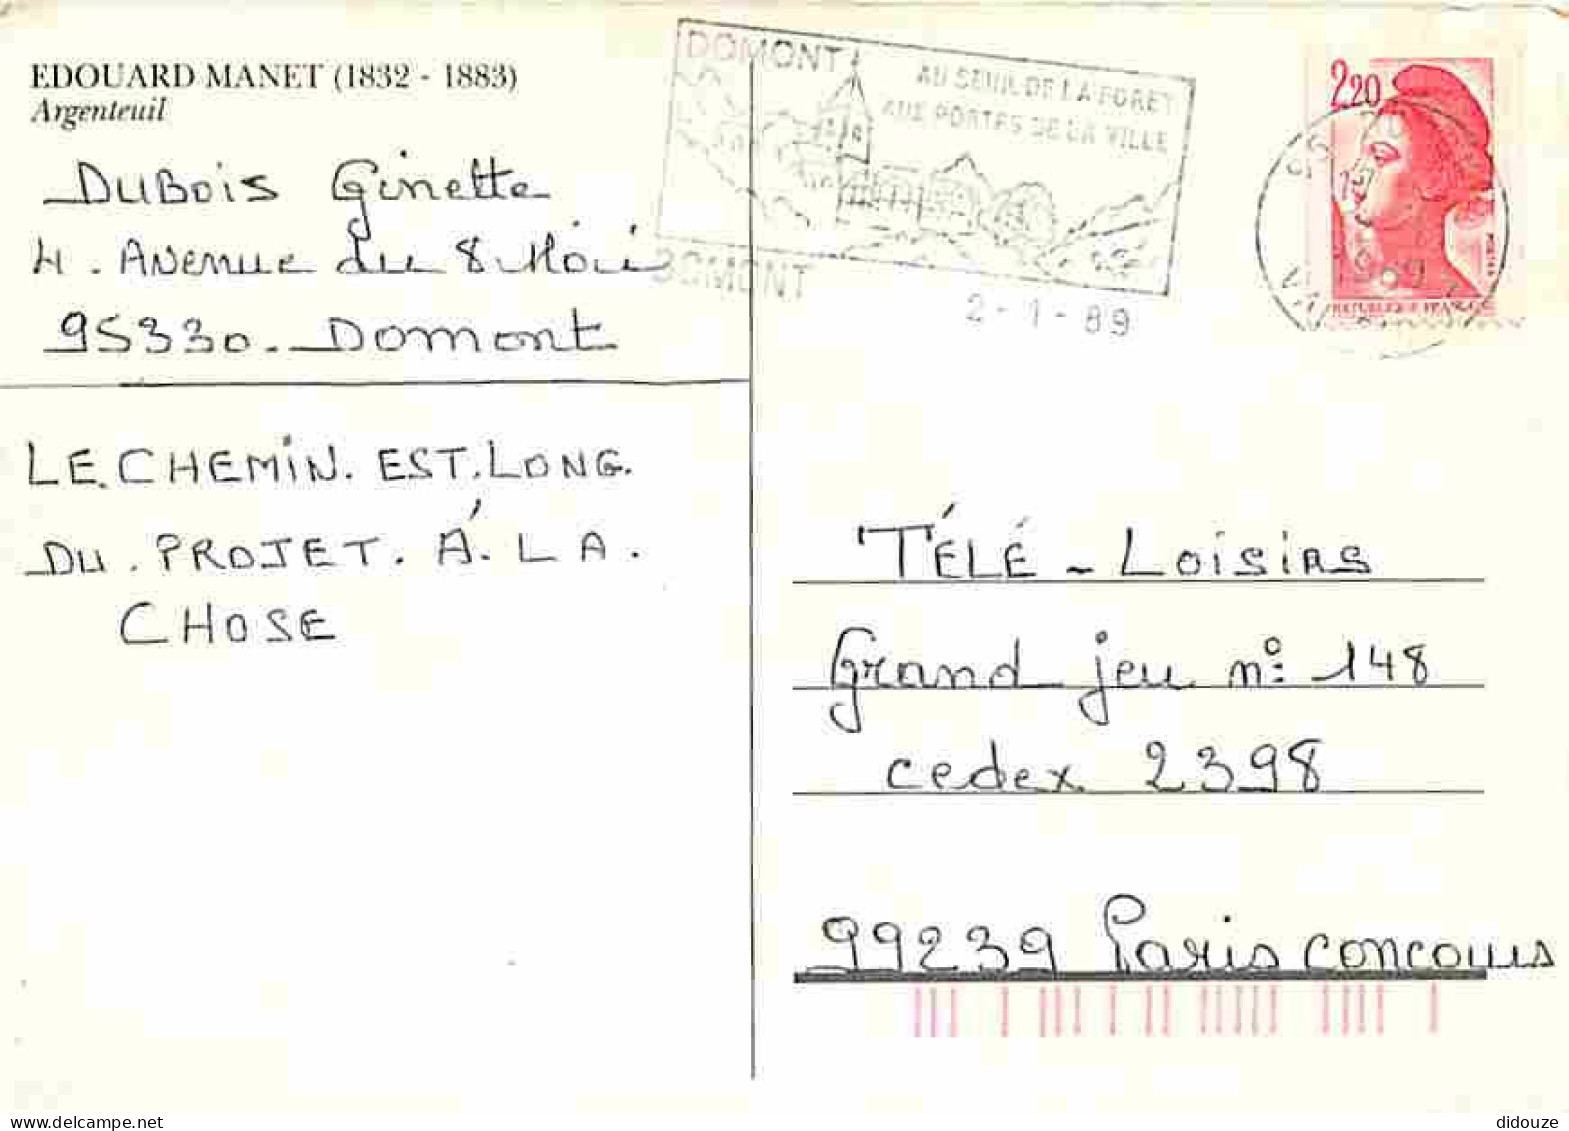 EDOUARD MANET (1832 - 1883)
Argenteuil
DUBOIS Ginette
4. Avenue du 8 Mai
95330. Domont
LE. CHEMIN. EST. LONG.
DU. PROJET. À. LA.
CHOSE
DOMONT
AU SEUIL DE LA FORET
AUX PORTES DE LA VILLE
DOMONT
2-1-89
2,20
REPUBLIQUE FRANÇAISE
TÉLÉ - LOISIRS
Grand jeu n° 148
cedex 2398
99239 Paris concours
didouze